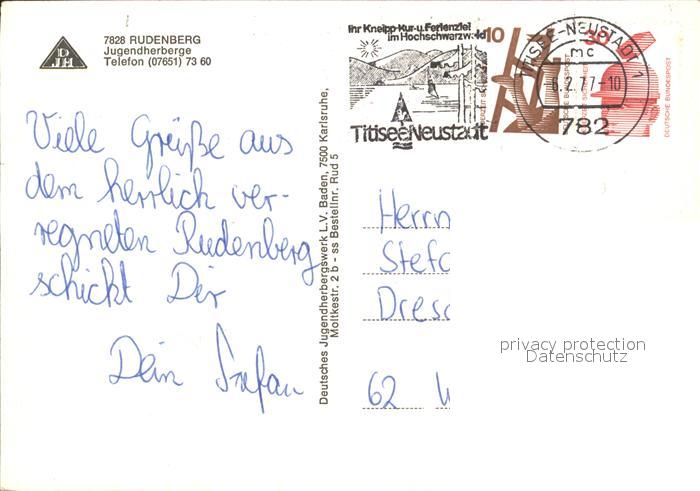 DJH
7828 RUDENBERG
Jugendherberge
Telefon (07651) 73 60
Viele Grüße aus
dem herrlich ver-
regneten Rudenberg
schickt Dir
Dein Stefan
Deutsches Jugendherbergswerk L.V. Baden, 7500 Karlsruhe,
Moltkestr. 2 b - ss Bestellnr. Rud 5
Ihr Kneipp-Kur-u. Ferienziel
im Hochschwarzwald
Titisee Neustadt
TITISEE-NEUSTADT 1
mc
-6.2.77-10
782
10
30
DEUTSCHE BUNDESPOST
DEUTSCHE BUNDESPOST
Herrn
Stefa
Dresc
62 W
privacy protection
Datenschutz